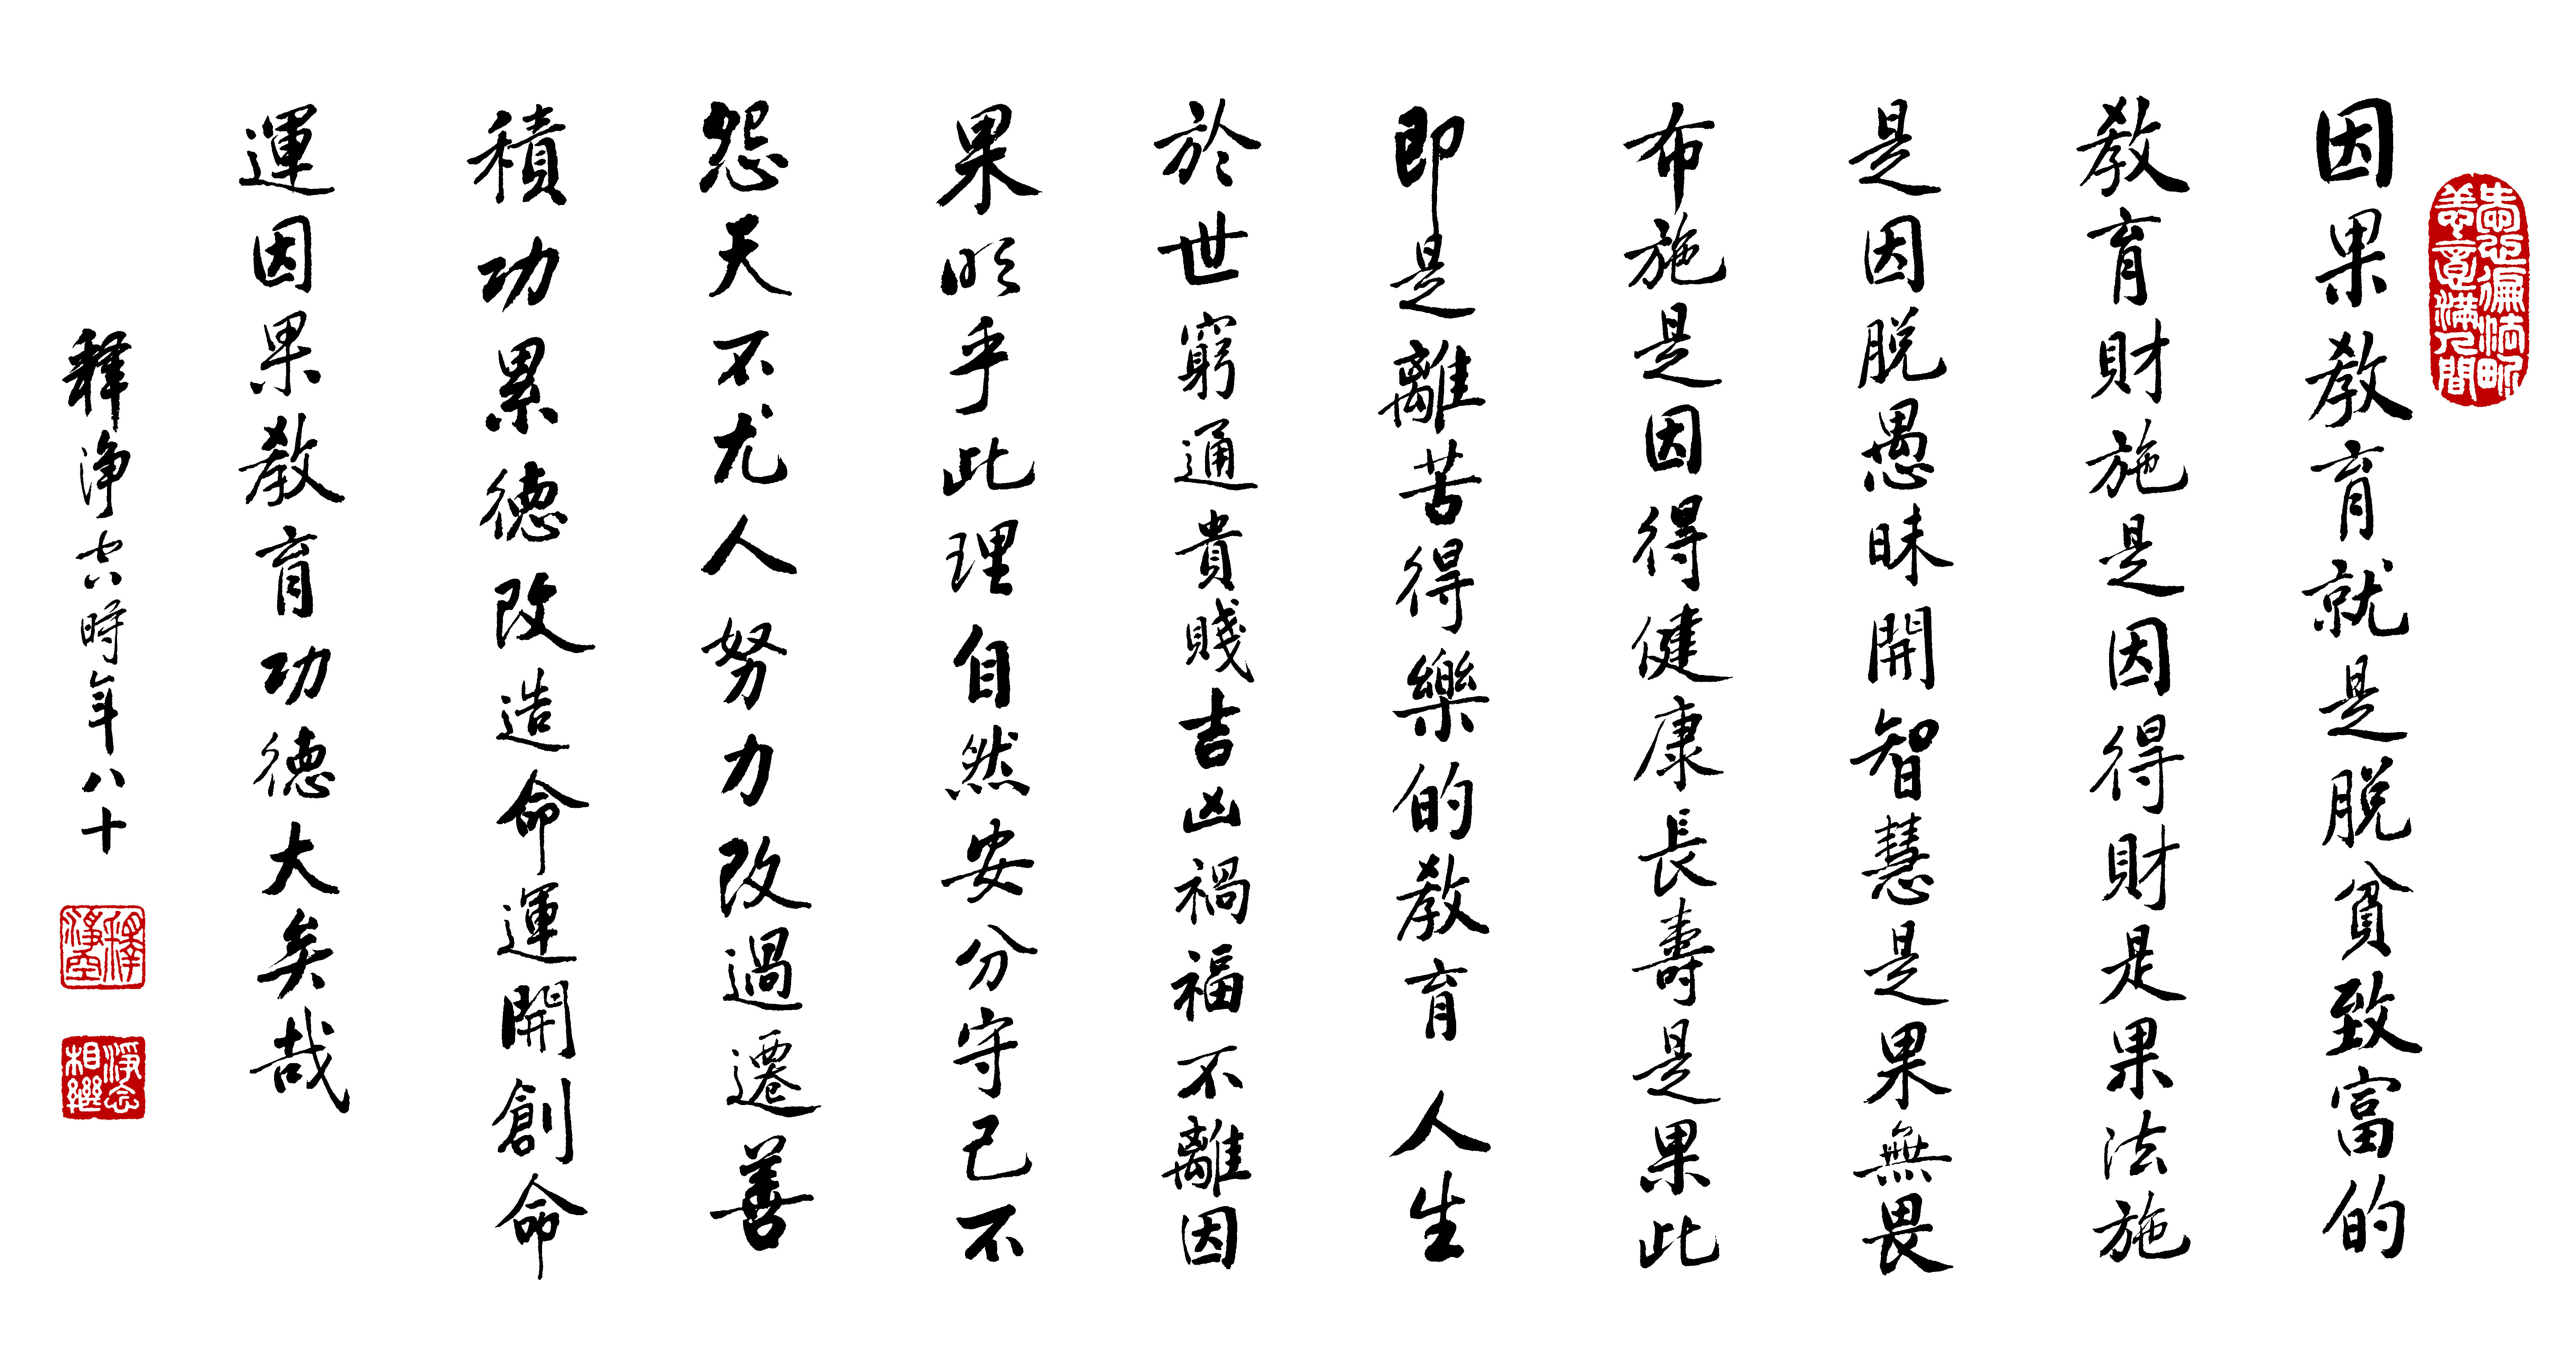 愛心徧法界
善意滿人間
因果教育就是脫貧致富的
教育財施是因得財是果法施
是因脫愚昧開智慧是果無畏
布施是因得健康長壽是果此
即是離苦得樂的教育人生
於世窮通貴賤吉凶禍福不離因
果明乎此理自然安分守己不
怨天不尤人努力改過遷善
積功累德改造命運開創命
運因果教育功德大矣哉
釋淨空時年八十
釋
淨空
淨念
相繼